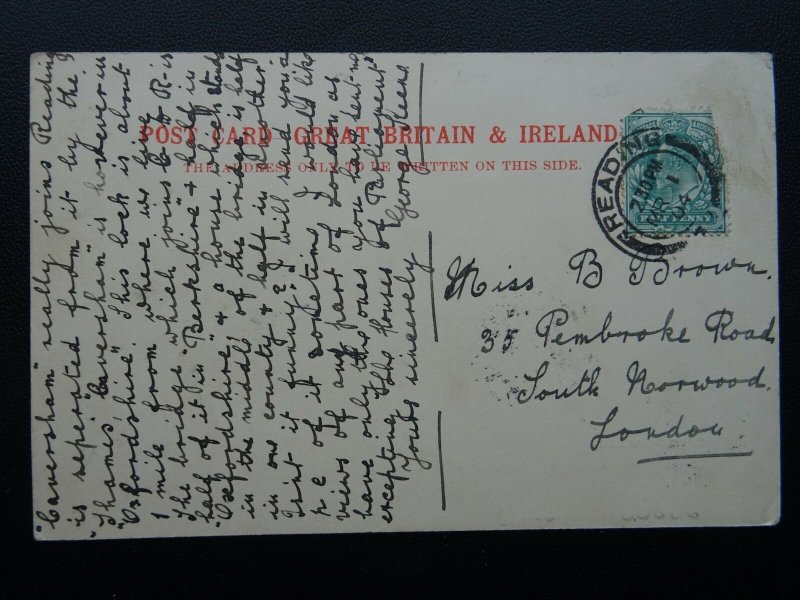 POST CARD - GREAT BRITAIN & IRELAND
THE ADDRESS ONLY TO BE WRITTEN ON THIS SIDE.
READING
7.30 PM
04
HALF PENNY
Miss B Brown.
35 Pembroke Road,
South Norwood.
London.
"Caversham" really joins Reading
is seperated from it by the
"Thames". "Caversham" is however in
"Oxfordshire". This lock is about
1 mile from where we live
The bridge which joins C to R - is
half of it in "Berkshire" + half in
"Oxfordshire", + a house which stands
in the middle of the bridge is half
in one county + half in another
Isnt it funny? I will send you a
p c of it sometime. I would like
views of any part of London as
have only the ones you have sent me
excepting "The Houses of Parliament"
Yours sincerely
George Keene